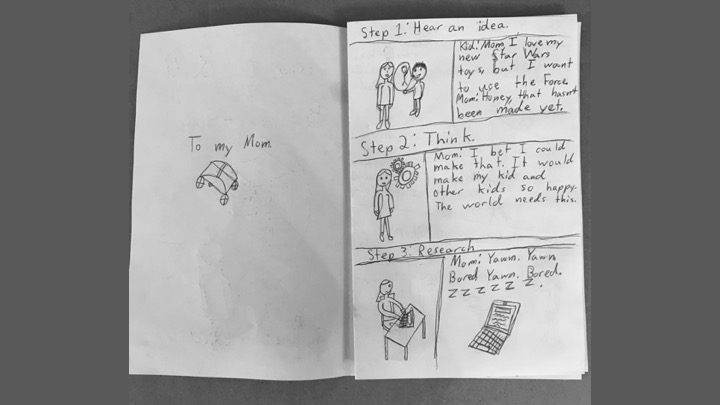 To my Mom
Step 1: Hear an idea.
Kid: Mom, I love my
new Star Wars
toys, but I want
to use the Force.
Mom: Honey, that hasn't
been made yet.
Step 2: Think.
Mom: I bet I could
make that. It would
make my kid and
other kids so happy.
The world needs this.
Step 3: Research
Mom: Yawn. Yawn
Bored Yawn. Bored.
Z Z Z Z Z Z.